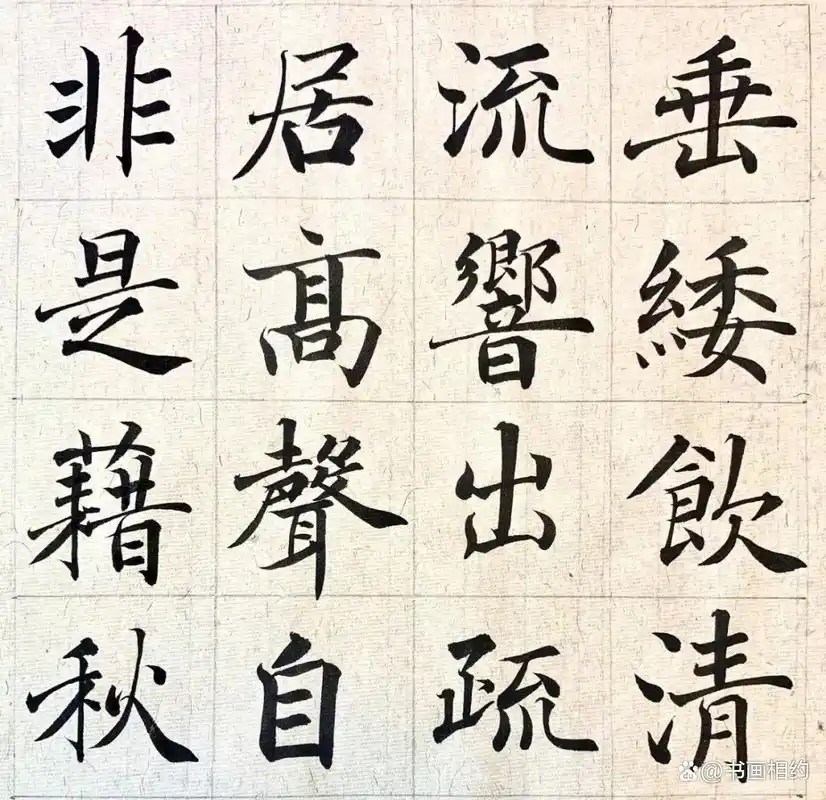 垂緌飲清
流響出疏
居高聲自
非是藉秋
@书画相约